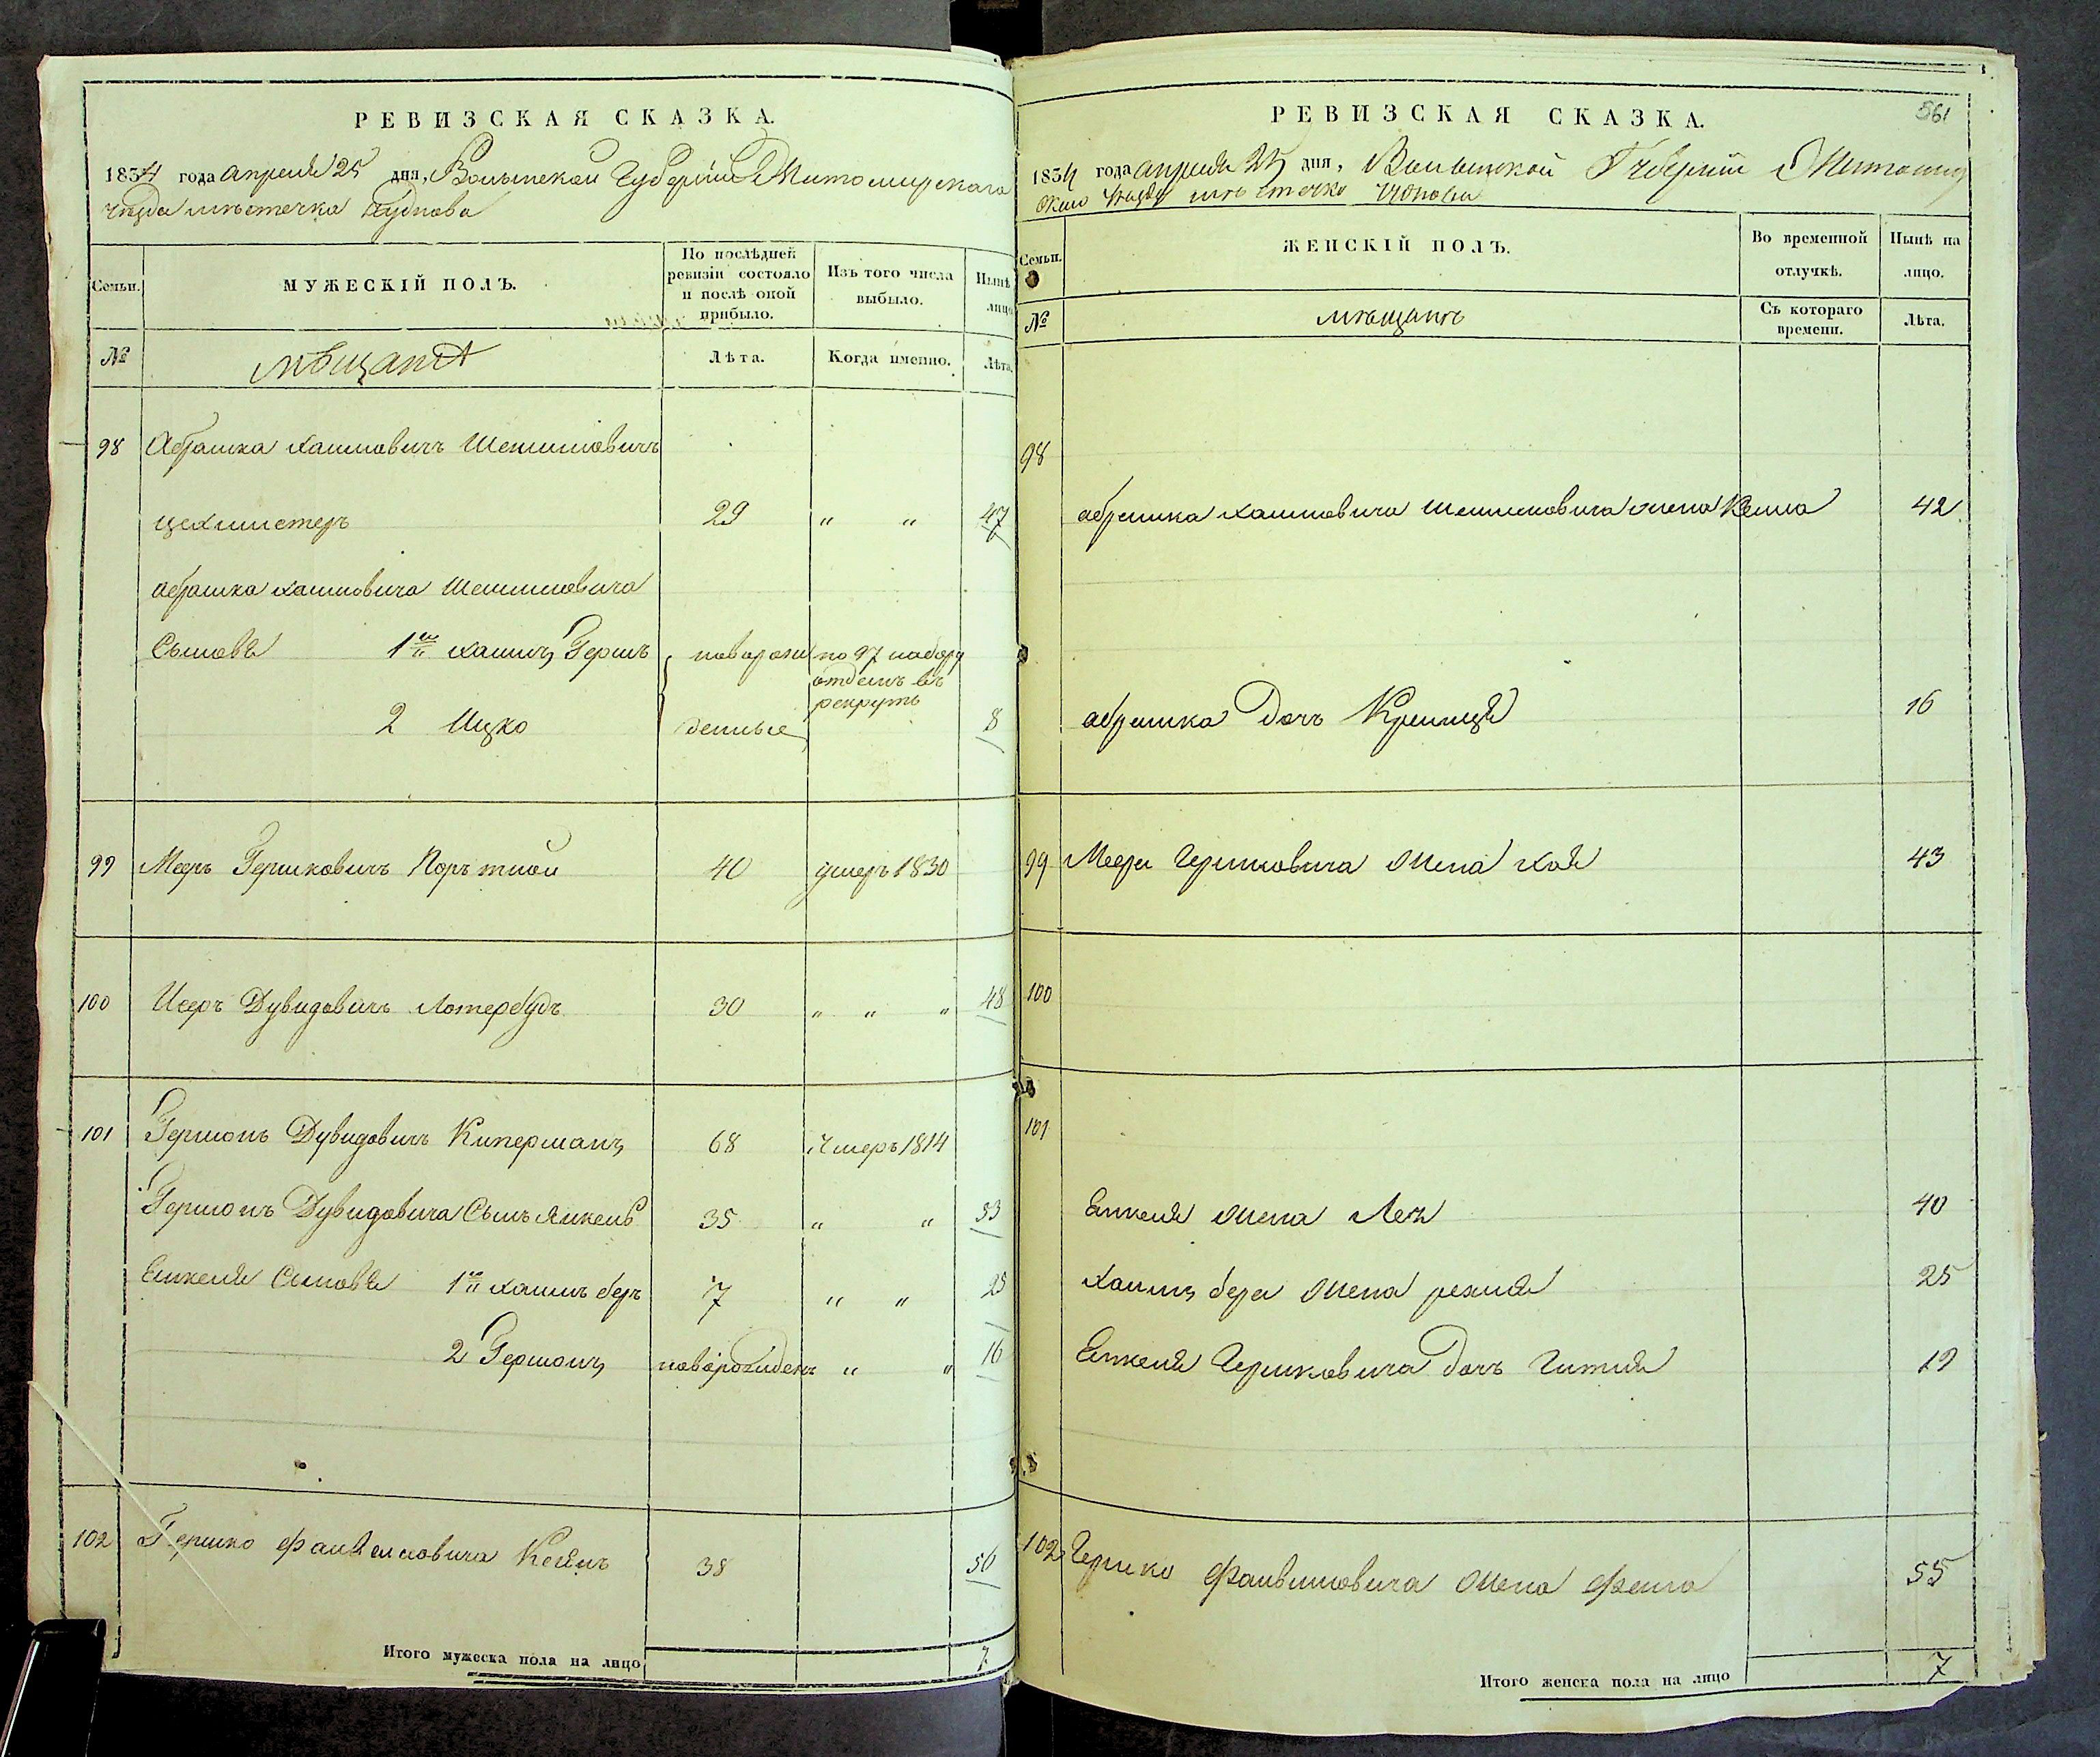 РЕВИЗСКАЯ СКАЗКА.
1834 года апреля 25 дня, Волынской Губерніи Житомирскаго
уезда мѣстечка Чуднова
Семьи.
МУЖЕСКІЙ ПОЛЪ.
По послѣдней ревизіи состояло и послѣ оной прибыло.
Изъ того числа выбыло.
Нынѣ лицо
№
мѣщанъ
Лѣта.
Когда именно.
Лѣта.
98 Абрашка Хаимовичъ
цехмистеръ 29 " " 47
абрашка хаимовича
Сыновья 1й хаимъ Гершъ новорож по 97 набору
отданъ въ
рекруты
2 Ицко денные 8
99 Мееръ Гершковичъ Портной 40 умеръ 1830
100 Исеръ Дувидовичъ 30 " " " 48
101 Гершонъ Дувидовичъ Киперманъ 68 Умеръ 1814
Гершонъ Дувидовича Сынъ Янкель 35 " " 53
Енкеля Сыновья 1й хаимъ беръ 7 " " 25
2 Гершонъ новорожденъ " " 16
102 Гершко 38 56
Итого мужеска пола на лицо 7
561
РЕВИЗСКАЯ СКАЗКА.
1834 года апреля 25 дня, Волынской Губерніи Житомир
скаго уезда мѣстечко Чуднова
Семьи.
ЖЕНСКІЙ ПОЛЪ.
Во временной отлучкѣ.
Нынѣ на лицо.
№
мѣщанъ
Съ котораго времени.
Лѣта.
98
абрашка хаимовича жена 42
абрашка дочь 16
99 Меера Гершковича жена хая 43
100
101
Енкеля жена Лея 40
хаимъ бера жена рехля 25
Енкеля Гершковича дочь Гитля 19
102 Гершко жена фейга 55
Итого женска пола на лицо 7